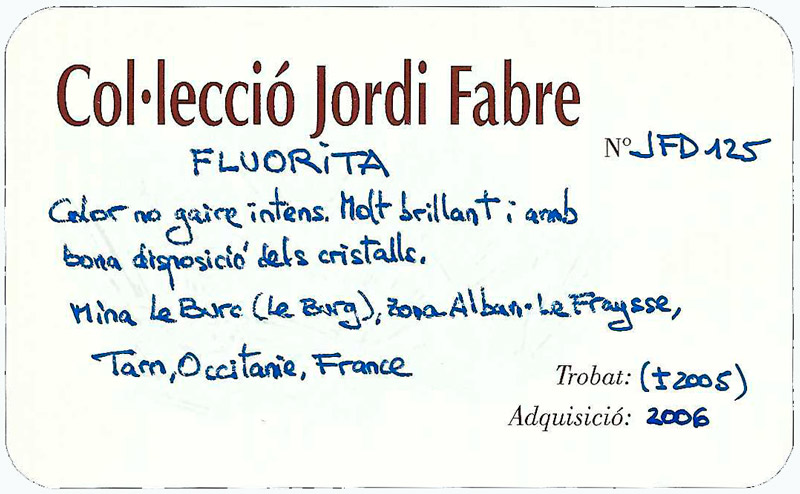 Col·lecció Jordi Fabre
Nº JFD 125
FLUORITA
Color no gaire intens. Molt brillant i amb
bona disposició dels cristalls.
Mina Le Burc (Le Burg), zona Alban-Le Fraysse,
Tarn, Occitanie, France
Trobat: (±2005)
Adquisició: 2006